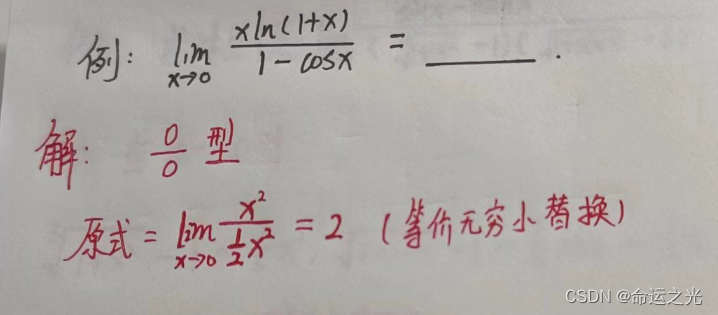 例: lim x→0 xln(1+x) / 1-cosx = ______ .
解: 0/0 型
原式 = lim x→0 x² / ½x² = 2 (等价无穷小替换)
CSDN @命运之光